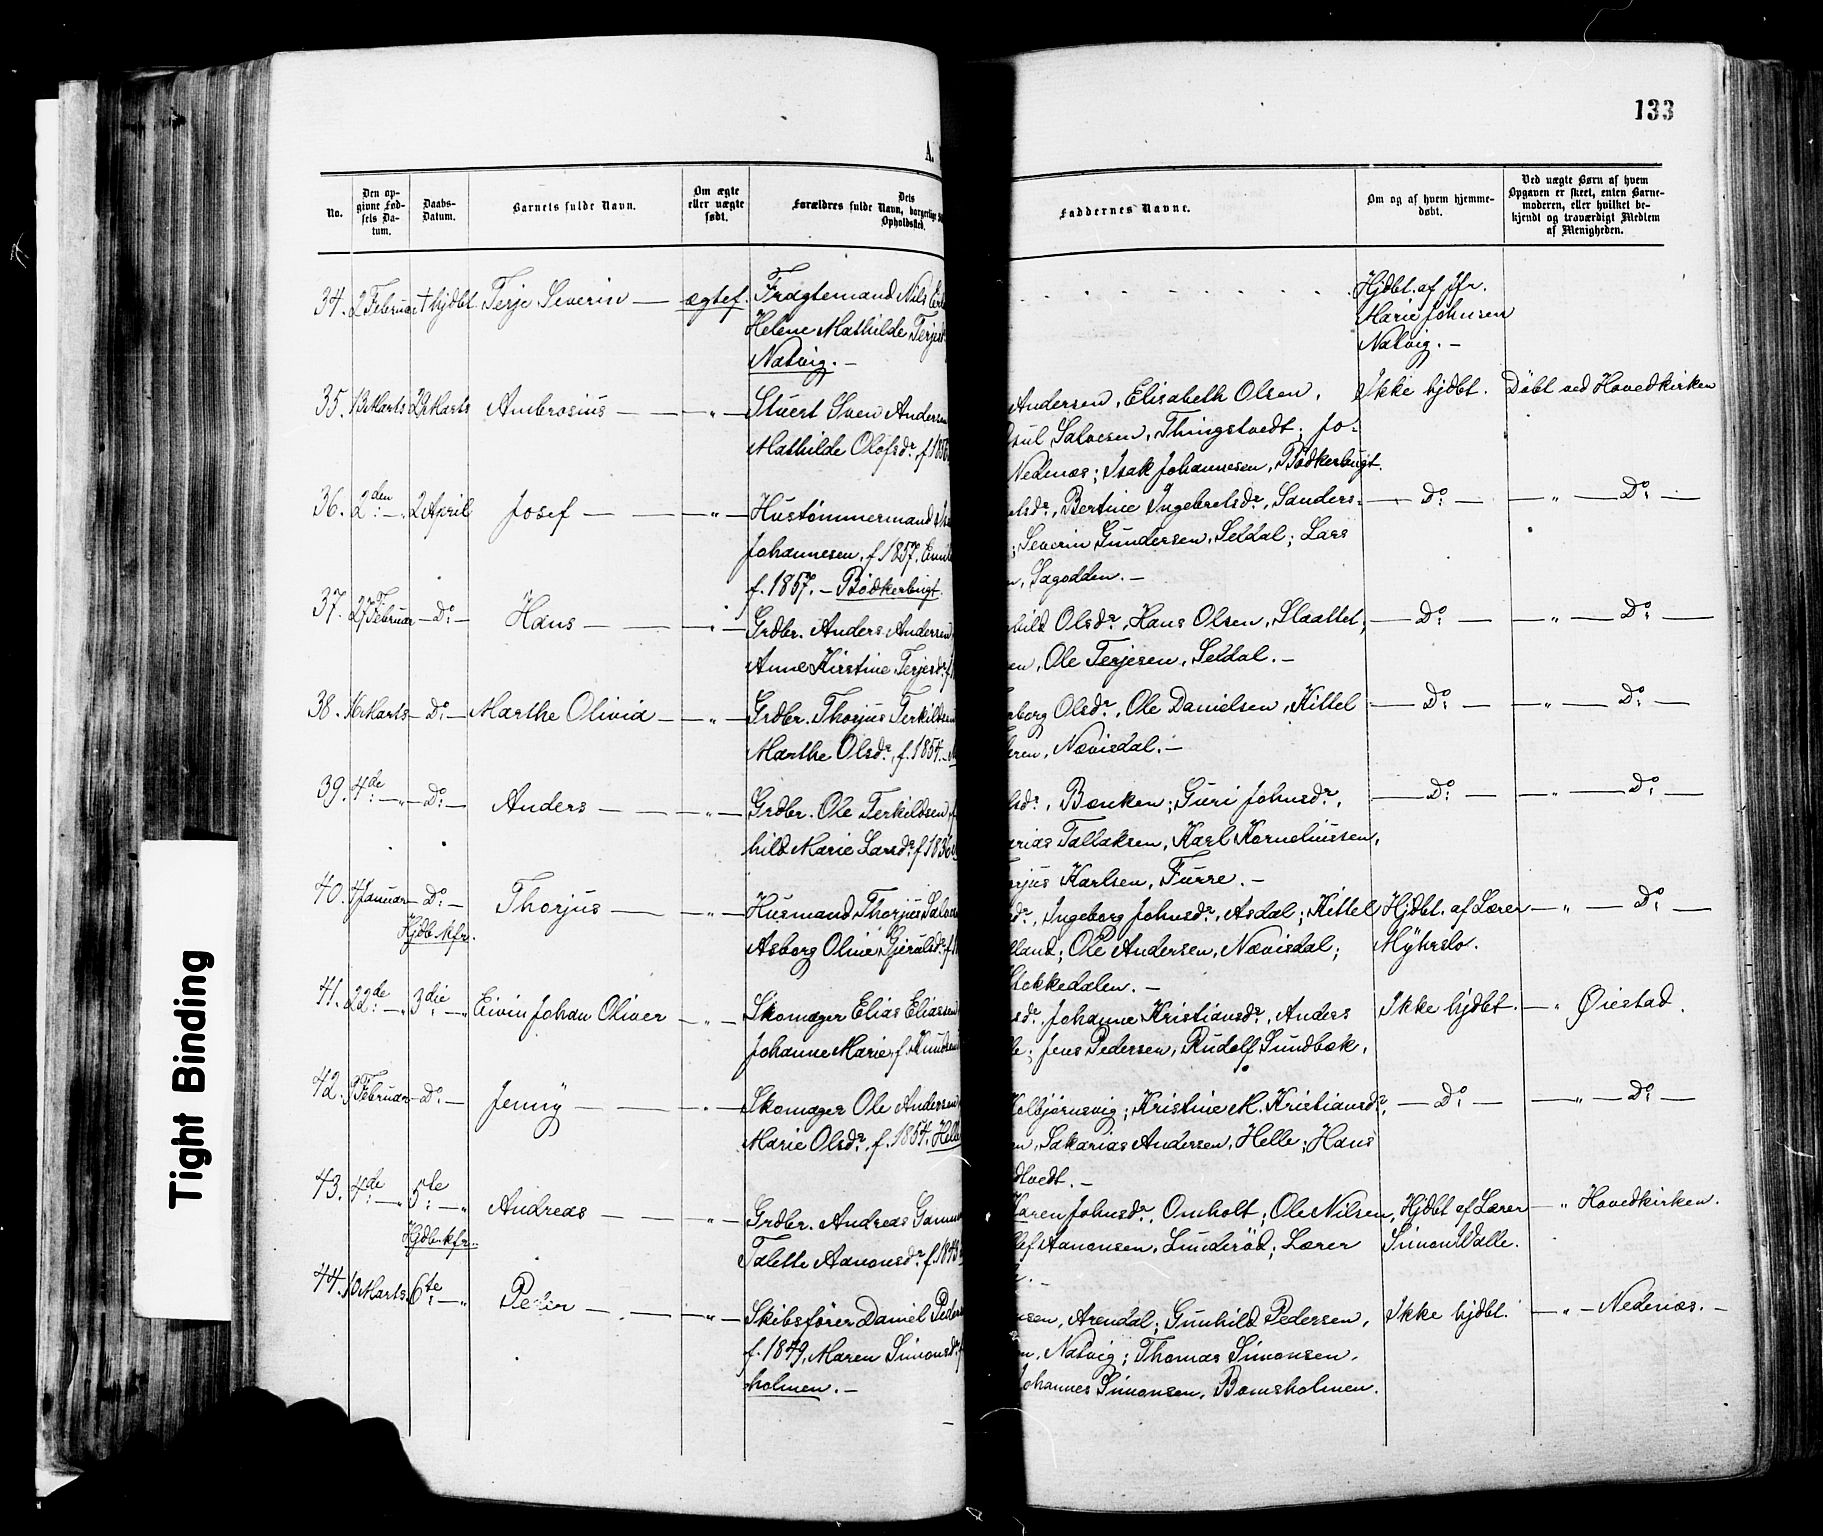 133
A.
No.
Den op-
givne Fød-
sels Da-
tum.
Daabs-
Datum.
Barnets fulde Navn.
Om ægte
eller uægte
født.
Dets
Forældres fulde Navn, borgerlige
Opholdssted.
Faddernes Navne.
Om og af hvem hjemme-
døbt.
Ved uægte Børn af hvem
Opgaven er skeet, enten Barne-
moderen, eller hvilket be-
kjendt og troværdigt Medlem
af Menigheden.
34. 2 Februar † hjdbt. Terje Severin — ægtef. Fragtemand Nils
Helene Mathilde Terjesd
Natvig. —
Hjdbt. af Jfr.
Marie Johnsen
Natvig. —
35. 13 Marts 29 Marts Ambrosius — " — Stuert Sven Andersen
Mathilde Olofsdr, f. 1856
Andersen, Elisabeth Olsen,
Salvesen, Thingstvedt; Jo-
Nedenæs; Isak Johannesen, Bödkerbugt.
Ikke hjdbt. Döbt ved Hovedkirken
36. 2den — " 2 April Josef — " — Hustömmermand
Johannesen, f. 1857,
f. 1857. — Bödkerbugt.
Bertine Ingebretsdr, Sanders-
; Severin Gundersen, Seldal; Lars
Sagodden. —
— Do — — " — Do —
37. 27 Februar — Do — Hans — " — Grdbr. Anders Andersen
Anne Kirstine Terjesdr
hild Olsdr, Hans Olsen, Slaattet,
en, Ole Terjesen, Seldal. —
— Do — — " — Do —
38. 16 Marts — Do — Marthe Olivia — " — Grdbr. Thorjus Terkildsen
Marthe Olsdr, f. 1854.
borg Olsdr, Ole Danielsen, Kittel
Nævisdal. —
— Do — — " — Do —
39. 4de — " — Do — Anders — " — Grdbr. Ole Terkildsen,
hild Marie Larsdr f. 1836
Bænken; Guri Johnsdr,
arias Tallaksen, Karl Korneliussen,
rjus Karlsen, Furre. —
— Do — — " — Do —
40. 4 Januar — Do — Thorjus — " — Husmand Thorjus
Hjdb. kfr.
Asborg Oline Gjerulsdr
Ingeborg Johnsdr, Asdal; Kittel
lland; Ole Andersen, Nævisdal;
Stokkedalen. —
Hjdbt. af Lærer
Myhrslo.
— " — Do —
41. 22de — " 3die — " Eivin Johan Oliver — " — Skomager Elias Eliassen
Johanne Marie, f. Knudsen
Johanne Kristiansdr, Anders
Jens Pedersen, Rudolf Sundbæk,
Ikke hjdbt. — " Öiestad.
42. 9 Februar — Do — Jenny — " — Skomager Ole Andersen,
Marie Olsdr, f. 1854. Helle
Kolbjörnsvig; Kristine M. Kristiansdr,
en, Sakarias Andersen, Helle; Hans
dtvedt. —
— Do — — " — Do —
43. 4de — " 5te — " Andreas — " — Grdbr. Andreas
Hjdb. kfr.
Talette Aanonsdr f. 1843
Karen Johnsdr, Omholt; Ole Nilsen,
lef Aanonsen, Lunderöd; Lærer
Hjdbt af Lærer
Simon Walle.
— " Hovedkirken.
44. 10 Marts. 6te — " Peder — " — Skibsförer Daniel Peders
f. 1849, Maren Simonsdr
holmen. —
nsen, Arendal; Gunhild Pedersen,
Natvig; Thomas Simonsen,
Johannes Simonsen, Bomsholmen.
Ikke hjdbt. — " — Nedenæs. —
Tight Binding